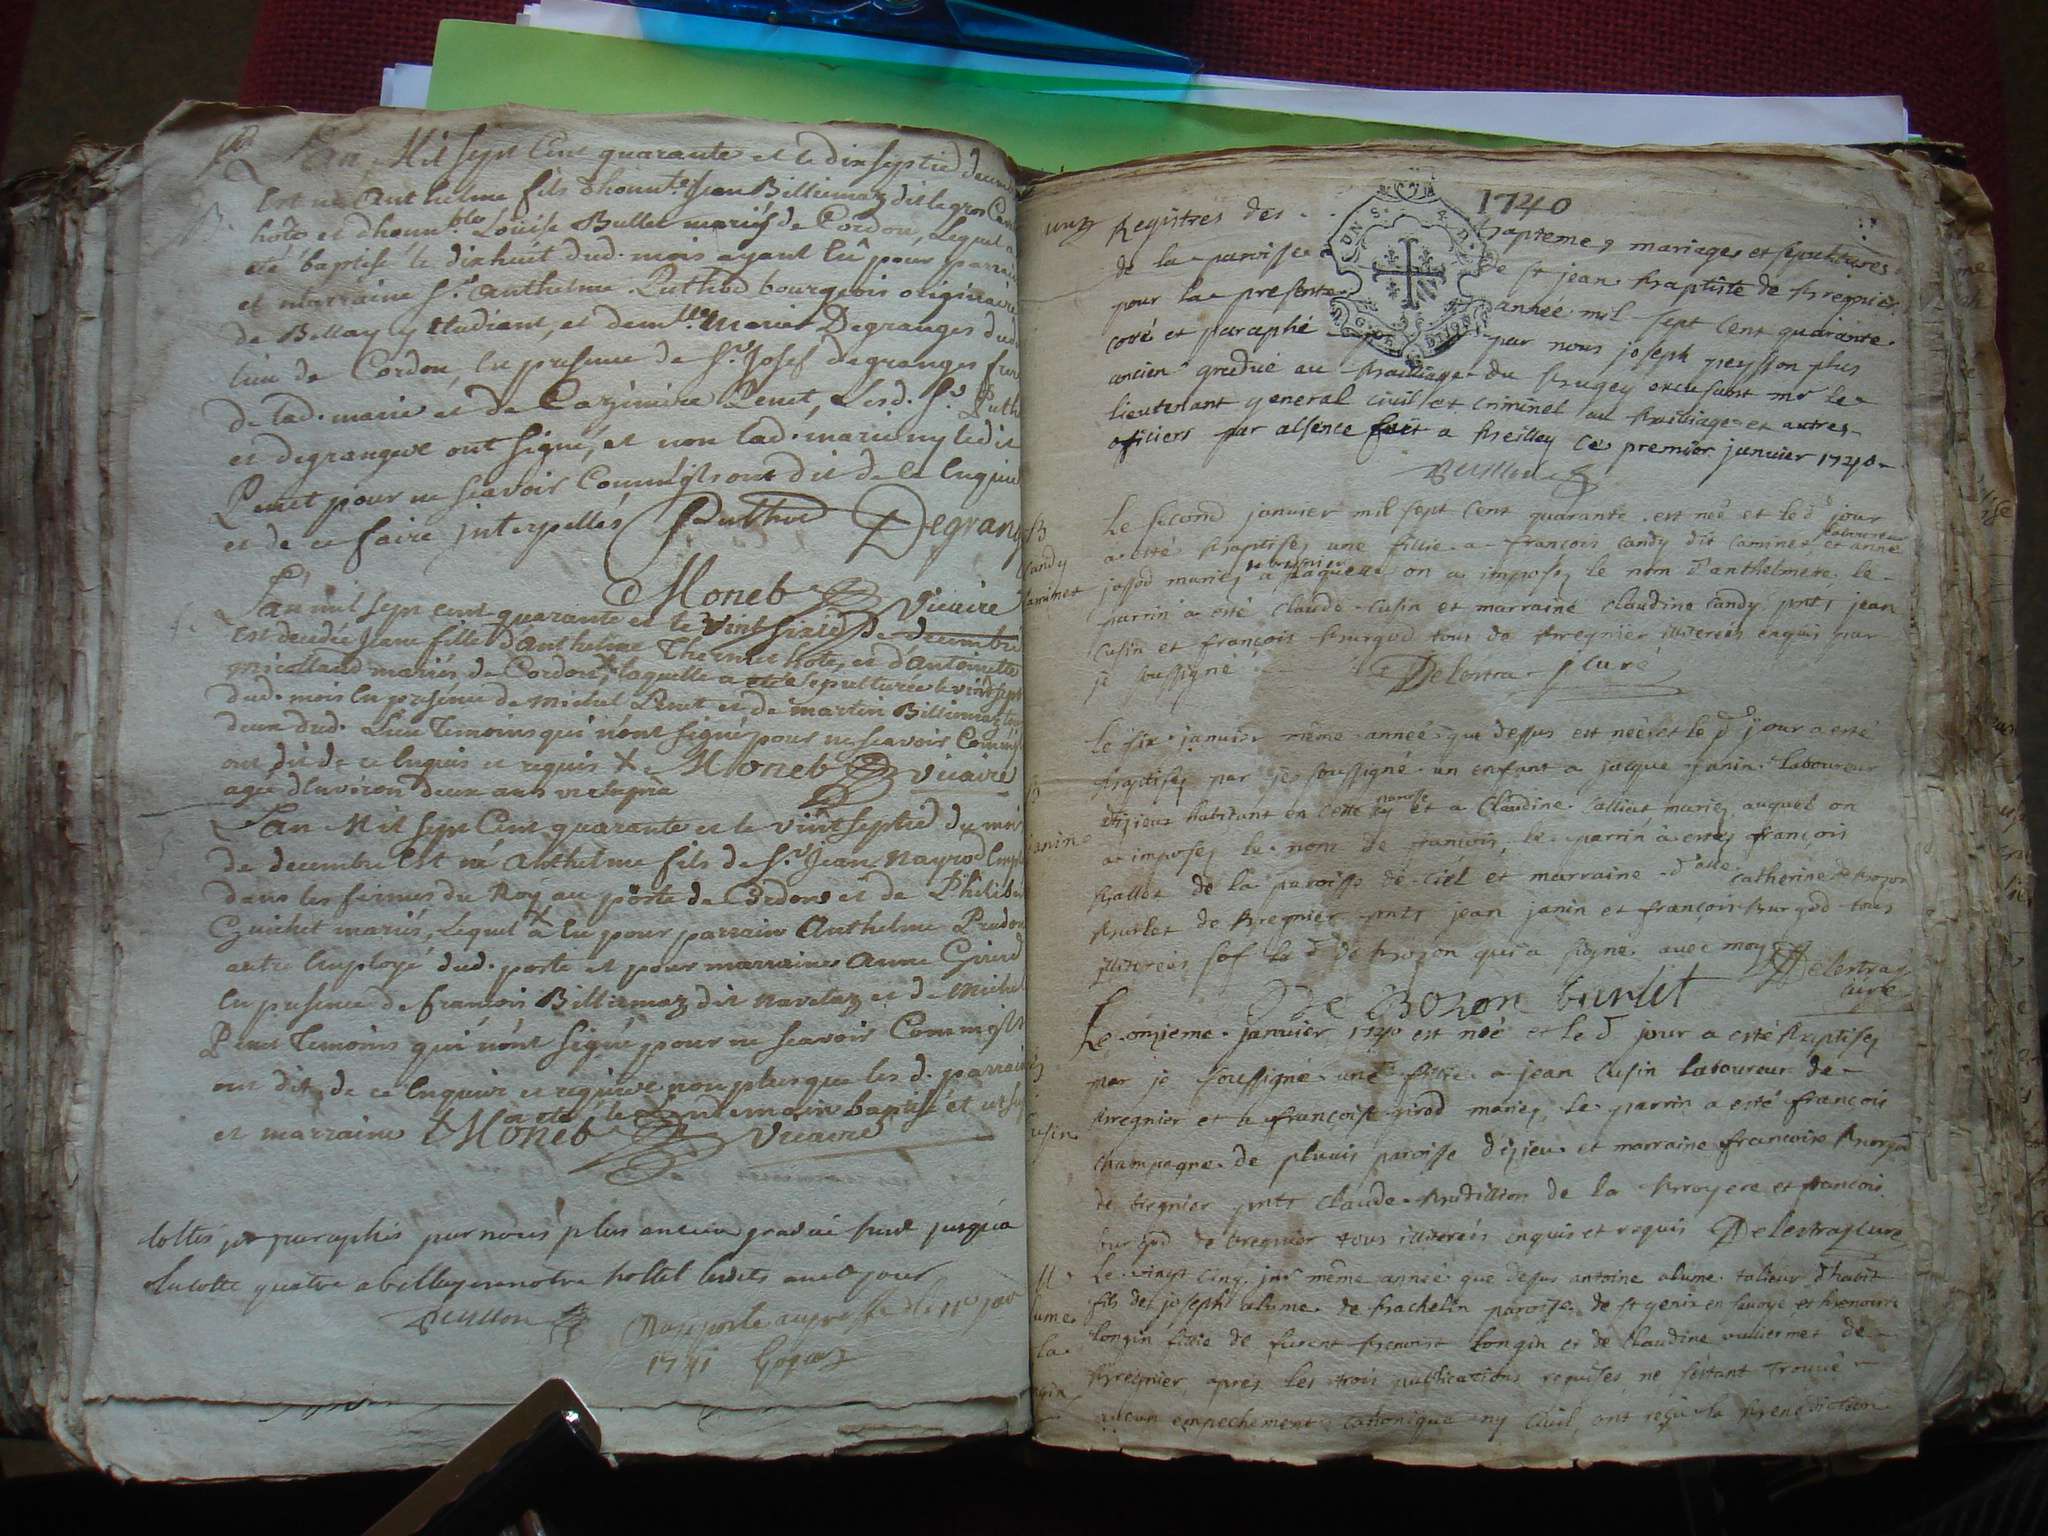 L'an Mil sept cent quarante et le dix septie decemb
est né anthelme fils d'honnte Jean Billiemaz dit le gros
hôte et d'honnble Louise Bullet mariés de Cordon, Lequel a
eté baptisé le dix huit dud. mois ayant eû pour parrain
et marraine Sr anthelme Puthod bourgeois originaire
de Bellay y etudiant, et demlle Marie Degranges dud
lieu de Cordon, en presence de Sr Josef degranges frere
de lad. marie et de Cazimire Penet, Lesd. Srs Puth
et degranges ont signé, et non lad. marie ny ledit
Penet pour ne scavoir Comm'ils ont dit de ce Enquis
et de ce faire interpellés Puthod Degrang
Moneb Vicaire
L'an mil sept cent quarante et le vint sixie de decembre
est decedée Jeane fille d'anthelme Thernet hôte, et d'antoinette
micalland mariés de Cordon, laquelle a eté sepulturée le vint sept
dud. mois en presence de michel Penet et de martin Billiemaz tous
deux dud. Lieu Temoins qui n'ont signé pour ne scavoir Comm'ils
ont dit de ce Enquis et requis x Moneb Vicaire
agée d'environ deux ans
L'an Mil sept Cent quarante et le vint septie du mois
de decembre est né anthelme fils de Sr Jean nayrod Employ
dans les fermes du Roy au poste de Cordon et de Philiber
Guichet mariés, Lequel a eu pour parrain Anthelme Prudon
autre Employé dud. poste et pour marraine anne Girard
En presence de francois Billiemaz dit navetaz et de Michel
Penet Temoins qui n'ont signé pour ne scavoir Comm'ils
ont dit de ce Enquis et requis non plus que les d. parrain
a eté le Lendemain baptisé et
et marraine Moneb Vicaire
Cottés et paraphés par nous plus ancien gradué jusqua
La cotte quatre a belley en notre hottel
Peysson
Rapporté au greffe le 11e janv
1741
1740
Registres des baptemes mariages et sepultures
de la paroisse de st jean Baptiste de Bregnier
pour la presente année mil sept cent quarante
coté et paraphé par nous joseph peysson plus
ancien gradué au Bailliage du Bugey excusant mr le
lieutenant general civil et criminel au Bailliage et autres
officiers par absence fait a Belley ce premier janvier 1740
Peysson
B
Candy
Caminet
Le second janvier mil sept cent quarante est née et le d jour
a esté Baptisez une fillie a francois Candy dit Caminet laboureur et anne
jossod mariez a on a imposez le nom d'anthelmette le
parrin a esté claude Cusin et marraine claudine Candy pnts jean
Cusin et françois Burgod tous de Bregnier illiterés enquis par
je soussigné Delestra Curé
Le six janvier même année que dessus est née et le d jour a esté
Baptisez par je soussigné un enfant a jacque janin laboureur
habitant en cette paroisse et a Claudine Calliat mariez auquel on
a imposez le nom de francois, le parrin a estez françois
Ballet de la paroisse de Ciel et marraine d'alle catherine de Bozon
Burlet de Bregnier pnts jean janin et françois Burgod tous
illiterés sof la d de Bozon qui a signé avec moy Delestraz
curé
De Bozon burlet
Le onzieme janvier 1740 est née et le d jour a esté Baptisez
par je soussigné une fillie a jean Cusin laboureur de
Bregnier et a françoise girod mariez, le parrin a esté françois
champagne de pluvis paroisse d'izieu et marraine francoise
de bregnier pnts claude Budillion de la Bruyere et francois
burgod de bregnier tous illiterés enquis et requis Delestraz curé
Le vingt cinq jer même année que desus antoine alume talieur d'habit
fils de joseph alume de Bachelin paroisse de st genix en savoye et
longin fillie de Benoist longin et de Claudine vulliermet de
Bregnier apres les trois publications requises, ne sestant trouvé
aucun empechement canonique ny civil, ont reçu la Benediction